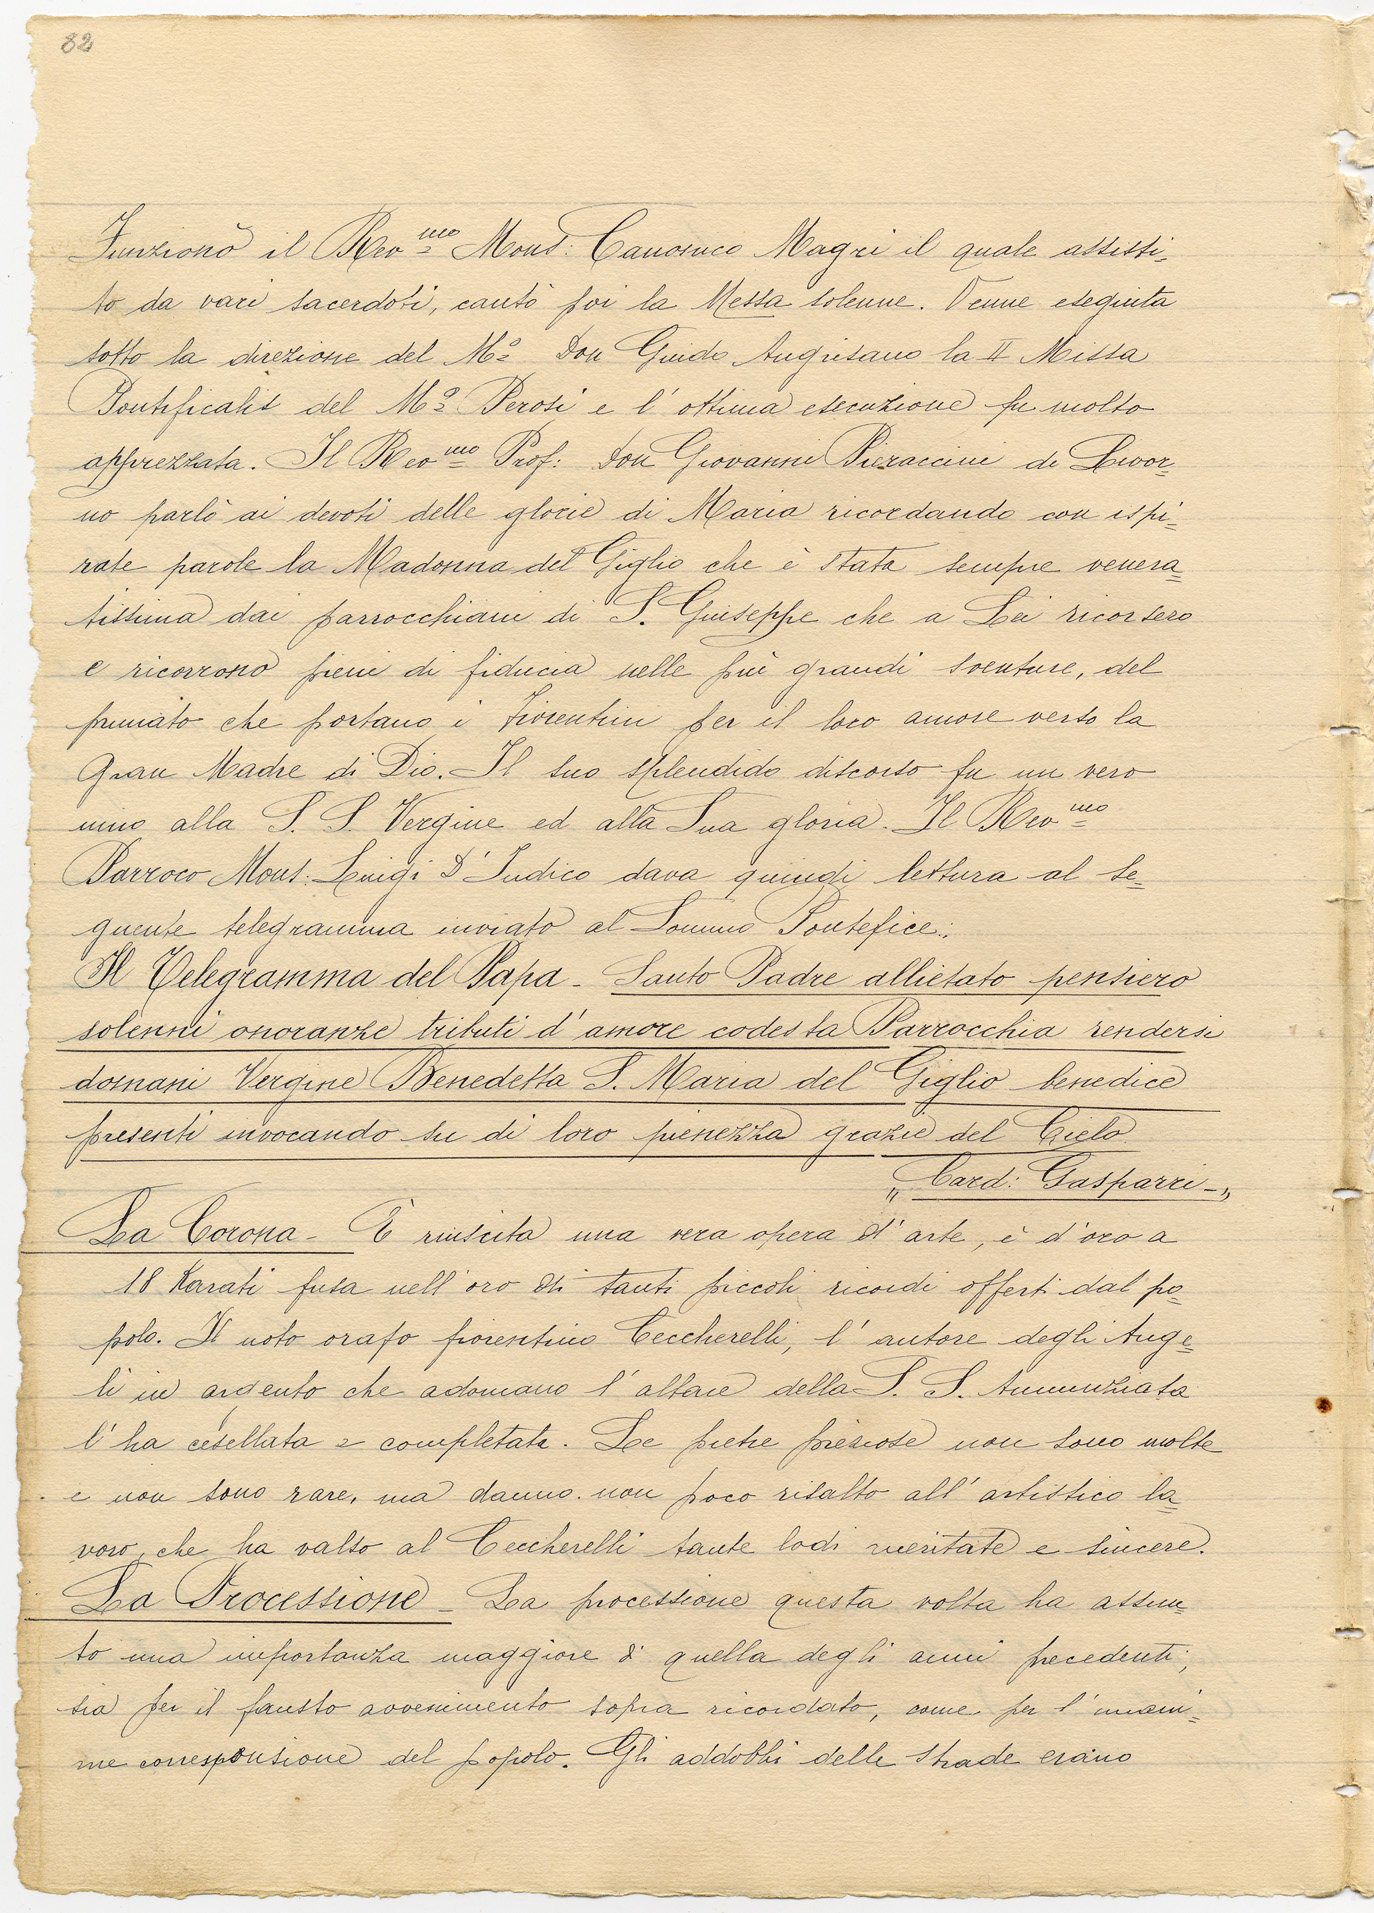 82
Funzionò il Rev.mo Mons: Canonico Magri il quale assisti-
to da vari sacerdoti, cantò poi la Messa solenne. Venne eseguita
sotto la direzione del M.o Don Guido Angrisano la II Missa
Pontificalis del M.o Perosi e l'ottima esecuzione fu molto
apprezzata. Il Rev.mo Prof: Don Giovanni Pieraccini di Livor=
no parlò ai devoti delle glorie di Maria ricordando con ispi=
rate parole la Madonna del Giglio che è stata sempre venera=
tissima dai parrocchiani di S. Giuseppe che a Lei ricorsero
e ricorrono pieni di fiducia nelle più grandi sventure, del
primato che portano i Fiorentini per il loro amore verso la
Gran Madre di Dio. Il suo splendido discorso fu un vero
inno alla S. S. Vergine ed alla Sua gloria. Il Rev.mo
Parroco Mons: Luigi D'Indico dava quindi lettura al se=
guente telegramma inviato al Sommo Pontefice:
Il Telegramma del Papa - Santo Padre allietato pensiero
solenni onoranze tributi d'amore codesta Parrocchia rendersi
domani Vergine Benedetta S. Maria del Giglio benedice
presenti invocando su di loro pienezza grazie del Cielo
„Card: Gasparri-„
La Corona - È riuscita una vera opera d'arte, è d'oro a
18 Karati fusa nell'oro di tanti piccoli ricordi offerti dal po=
polo. Il noto orafo fiorentino Ceccherelli, l'autore degli Ange=
li in argento che adornano l'altare della S. S. Annunziata
l'ha cesellata e completata. Le pietre preziose non sono molte
e non sono rare, ma danno non poco risalto all'artistico la=
voro, che ha valso al Ceccherelli tante lodi meritate e sincere.
La Processione - La processione questa volta ha assun=
to una importanza maggiore di quella degli anni precedenti,
sia per il fausto avvenimento sopra ricordato, come per l'unani=
me corresponsione del popolo. Gli addobbi delle strade erano